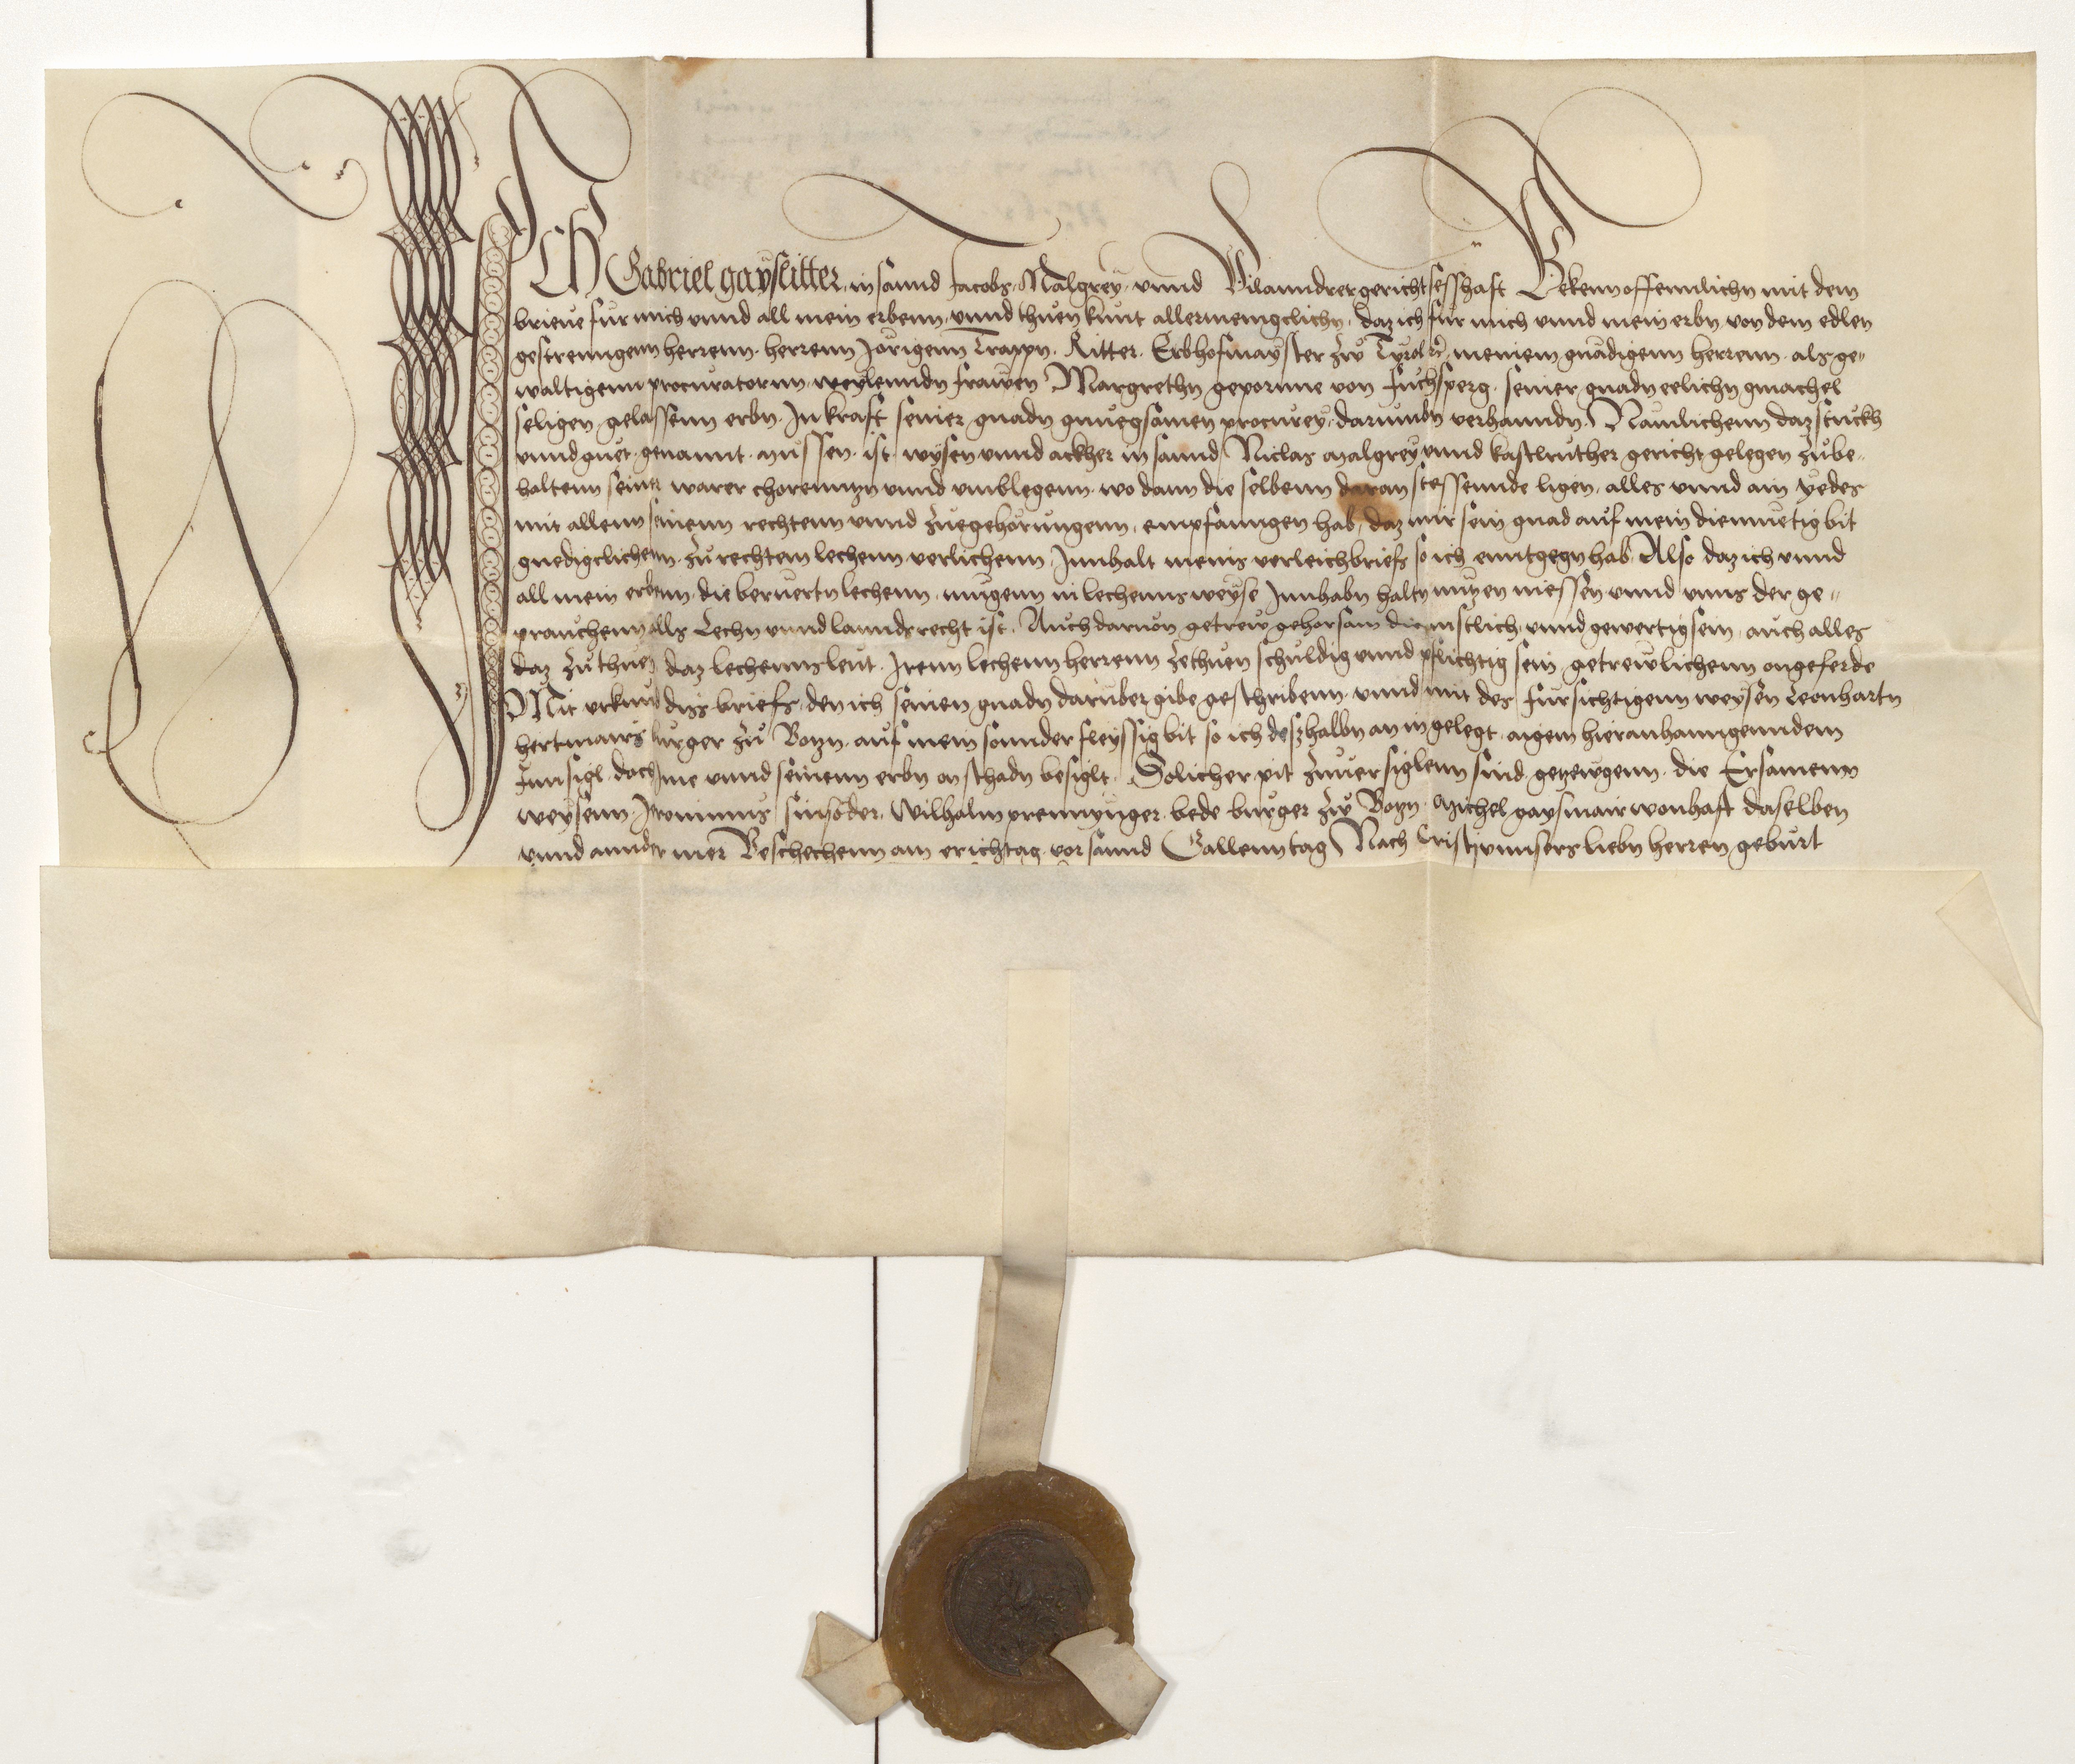 ICH Gabriel gaÿslitter, in sannd Jacobs Malgreÿ vnnd Vilanndrer gericht sesshaft Bekenn offennlichn mit dem
brieue fur mich vnnd all mein erbenn, vnnd thuen kunt allermenigclichn, daz ich fur mich vnnd mein erbn, von dem edlen
gestrenngenn herrenn, herrenn Jörigenn Trappn, Ritter, Erbhofmaÿster zu Tyrol rc̃, meinem gnädigenn herrenn, als ge„
waltigenn procuratornn, weÿlenndn frawen Margrethn geporinne von fuchsperg, seiner gnadn eelichn gmachel
seligen, gelassenn erbn, In kraft seiner gnadn gnuegsamen procureÿ, darumbn verhanndn, Nämlichenn daz stuckh
vnnd guet, genannt, mussen, ist wysen vnnd ackher in sannd Niclas malgreÿ vnnd kastlruther gericht gelegen zube„
haltenn seiner warer chorenntzn vnnd vmblegenn, wo dann die selbenn daran stossennde ligen, alles vnnd ain yedes
mit allenn seinenn rechtenn vnnd zuegehörungenn, empfanngen hab, daz mir sein gnad auf mein diemuetig bit
gnedigclichenn, zu rechtem lechenn verlichenn, Innhalt meins verleichbriefs so ich enntgegn hab, Also daz ich vnnd
all mein erbenn, die beruertn lechenn, mugenn in lechennsweÿse Innhabn haltn nutzen niessen vnnd vnns der ge„
prauchenn, alls Lechn vnnd lanndsrecht ist, Auch daruon getrew gehorsam diennstlich, vnnd gewertig sein, auch alles
daz zuthuen daz lechennsleut, Irenn lechennherrenn zethuen schuldig vnnd phlichtig sein, getrewlichenn ongeferde
Mit vrkund diss briefs, den ich seinen gnadn darüber gibe geschribenn, vnnd mit des fursichtigenn weÿsen Leonhartn
hertmairs burger zu Botzn, auf mein sonnder fleÿssig bit so ich deszhalbn an in gelegt, aigem hieranhanngenndem
Innsigl, doch Ime vnnd seinenn erbn on schadn besiglt, Solicher pit zuuersiglenn sind getzewgenn, die Ersamenn
weÿsenn, Jeronimus sinsöder, Wilhalm premynger, bede burger zu Botzn, Michel gaysmair wonhaft daselben
vnnd annder mer Beschechenn am erichtag vor sannd Gallenn tag Nach Cristj vnnsers liebn herren geburt